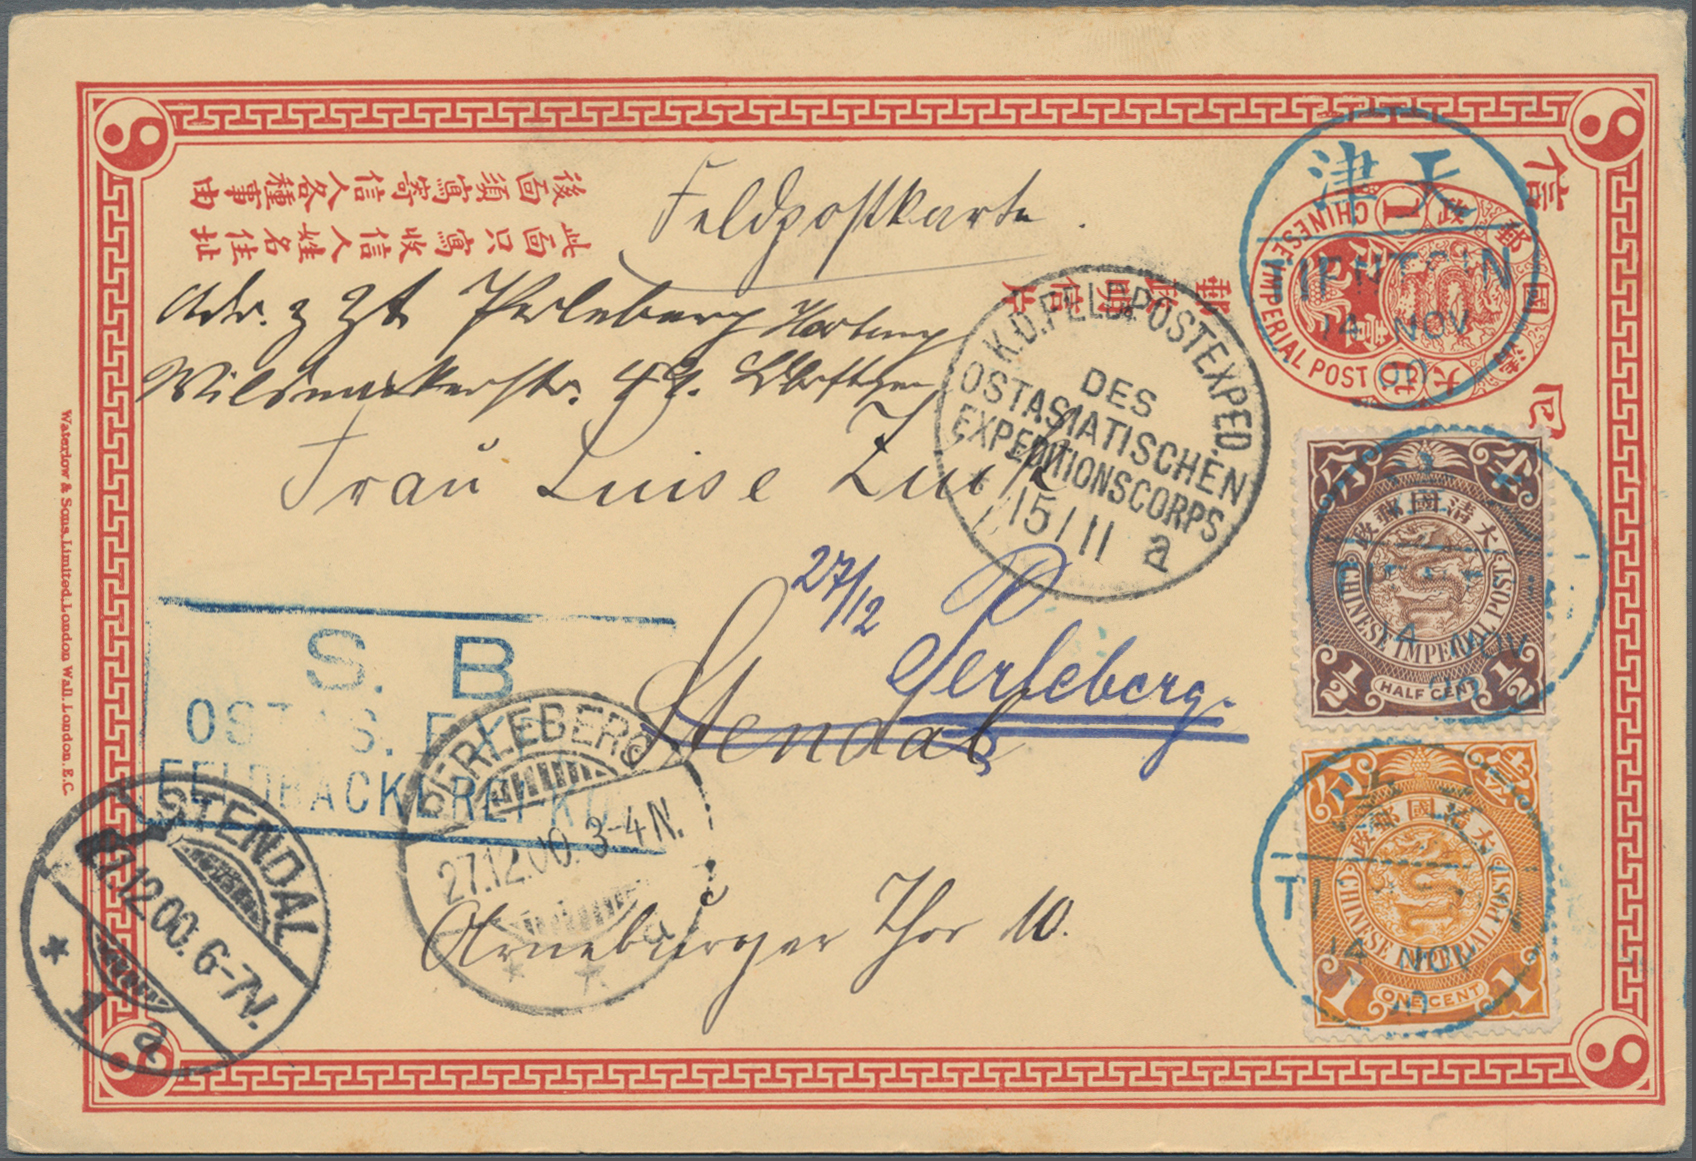 後面須寫寄信人各種事由
此面只寫收信人姓名住址
Feldpostkarte.
Adr. z Zt Perleberg
Wilsnackerstr.
Frau Luise
Stendal
27/12
Perleberg.
Arneburger Thor 10.
K.D. FELDPOSTEXPED.
DES
OSTASIATISCHEN
EXPEDITIONSCORPS
15/11
a
S. B
OSTAS. EX
FELDBÄCKEREI KO
PERLEBERG
27.12.00. 3-4N.
STENDAL
27.12.00. 6-7N.
1 a
天津
TIENTSIN
14 NOV
00
大清國郵政
CHINESE IMPERIAL POST
1
大清國郵政
CHINESE IMPERIAL POST
1/2 HALF CENT 1/2
4 NOV
大清國郵政
CHINESE IMPERIAL POST
1 ONE CENT 1
14 NOV
Waterlow & Sons, Limited, London Wall, London, E.C.